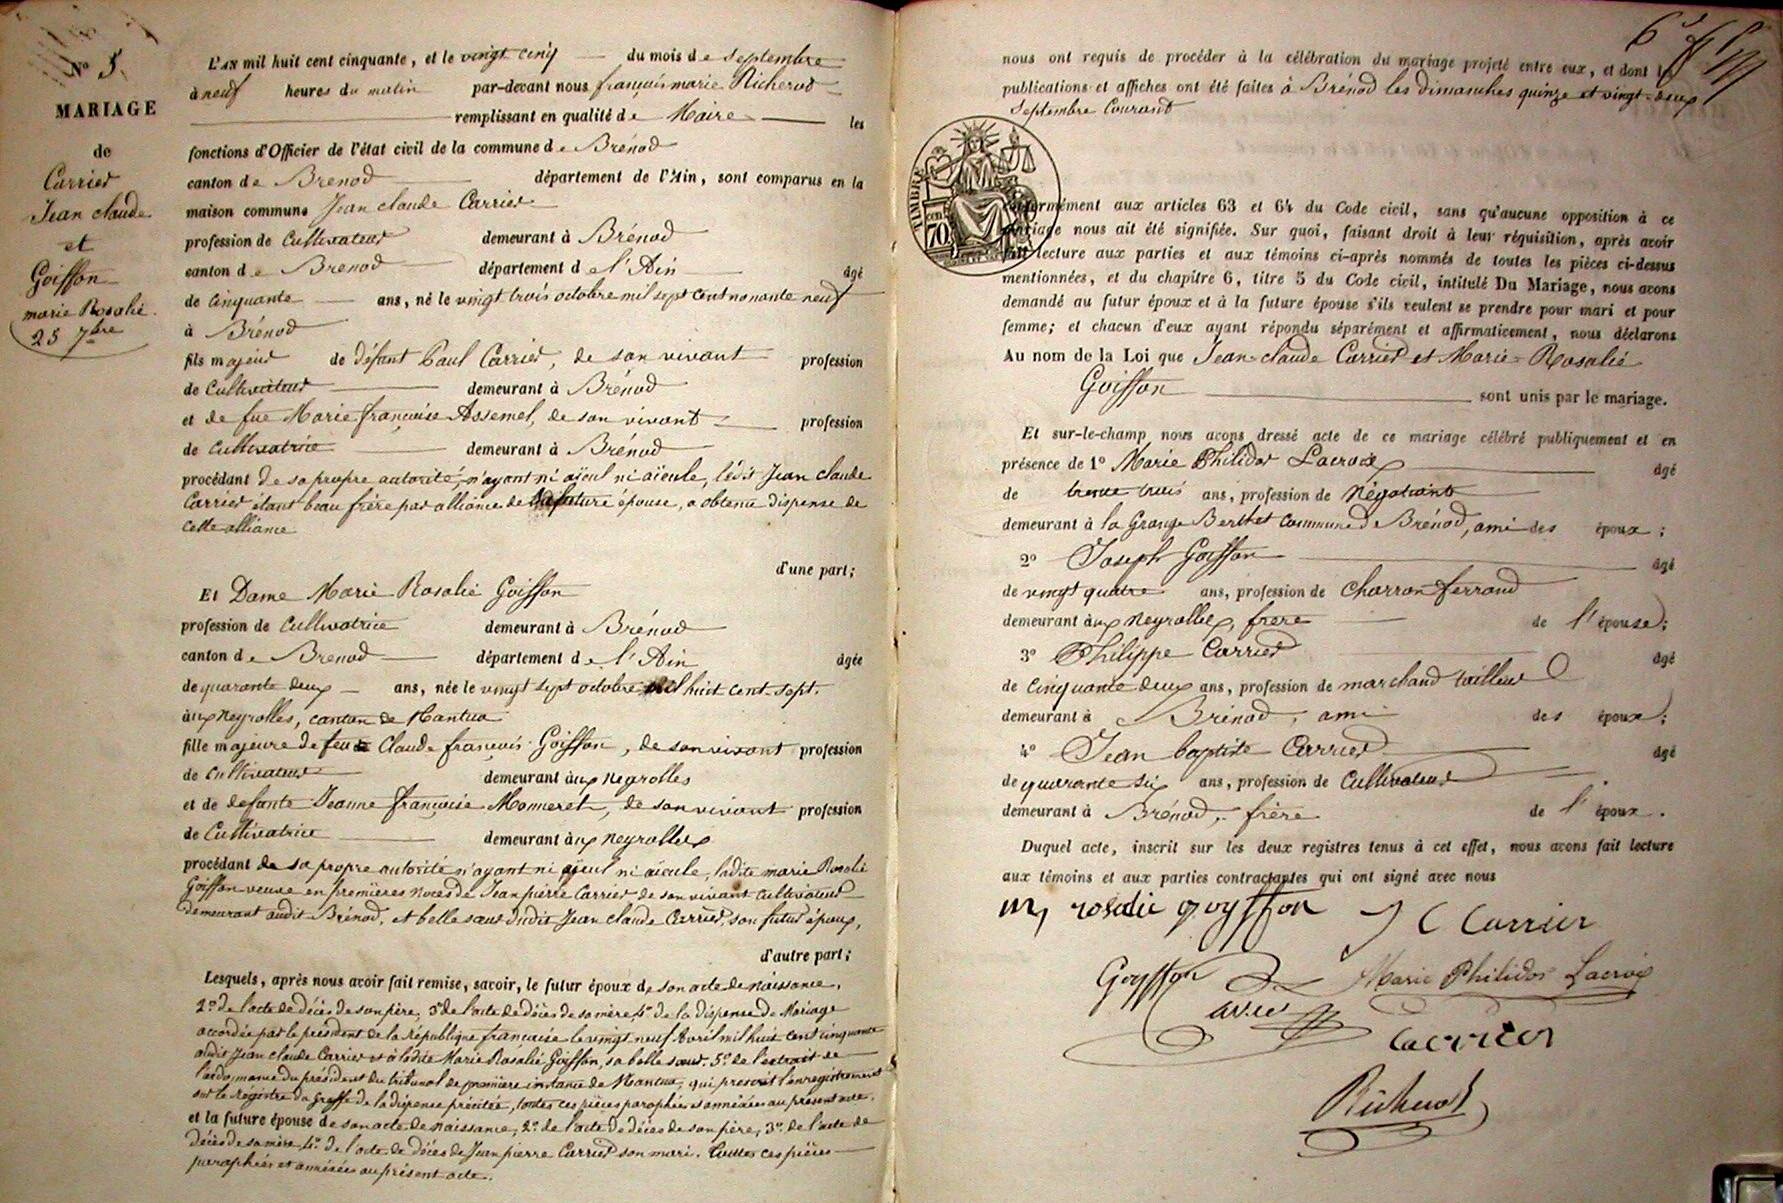 N° 5.
MARIAGE
de
Carrier
Jean claude
et
Goiffon
marie Rosalie.
25 7bre
L'AN mil huit cent cinquante, et le vingt cinq du mois de septembre
à neuf heures du matin par-devant nous françois marie Richerod
remplissant en qualité de Maire les
fonctions d'Officier de l'état civil de la commune de Brénod
canton de Brenod département de l'Ain, sont comparus en la
maison commune Jean claude Carrier
profession de Cultivateur demeurant à Brénod
canton de Brenod département de l'Ain âgé
de cinquante ans, né le vingt trois octobre mil sept cent nonante neuf
à Brénod
fils majeur de défunt Paul Carrier, de son vivant profession
de Cultivateur demeurant à Brénod
et de feue Marie françoise Assemel, de son vivant profession
de Cultivatrice demeurant à Brénod
procédant de sa propre autorité, n'ayant ni aïeul ni aïeule, ledit Jean claude
Carrier étant beau frère par alliance de la future épouse, a obtenu dispense de
cette alliance
d'une part;
Et Dame Marie Rosalie Goiffon
profession de Cultivatrice demeurant à Brénod
canton de Brenod département de l'Ain âgée
de quarante deux ans, née le vingt sept octobre mil huit cent sept.
aux Neyrolles, canton de Nantua
fille majeure de feu Claude françois Goiffon, de son vivant profession
de cultivateur demeurant aux Neyrolles
et de défunte Jeanne françoise Monneret, de son vivant profession
de Cultivatrice demeurant aux Neyrolles
procédant de sa propre autorité n'ayant ni aïeul ni aïeule, ladite marie Rosalie
Goiffon veuve en premières noces de Jean pierre Carrier de son vivant cultivateur
demeurant audit Brénod, et belle sœur dudit Jean claude Carrier, son futur époux,
d'autre part;
Lesquels, après nous avoir fait remise, savoir, le futur époux de son acte de naissance,
2° de l'acte de décès de son père, 3° de l'acte de décès de sa mère, 4° de la dispense de Mariage
accordée par le président de la république française le vingt neuf Avril mil huit cent cinquante
audit Jean claude Carrier et à ladite Marie Rosalie Goiffon, sa belle sœur, 5° de l'extrait de
l'ordonnance du président du tribunal de première instance de Nantua, qui prescrit l'enregistrement
sur le régistre du Greffe de la dispense précitée, toutes ces pièces paraphées et annéxées au présent acte.
et la future épouse de son acte de naissance, 2° de l'acte de décès de son père, 3° de l'acte de
décès de sa mère, 4° de l'acte de décès de Jean pierre Carrier son mari. Toutes ces pièces
paraphées et annéxées au présent acte.
nous ont requis de procéder à la célébration du mariage projeté entre eux, et dont les
publications et affiches ont été faites à Brénod les dimanches quinze et vingt-deux
Septembre Courant
TIMBRE
70
conformément aux articles 63 et 64 du Code civil, sans qu'aucune opposition à ce
mariage nous ait été signifiée. Sur quoi, faisant droit à leur réquisition, après avoir
fait lecture aux parties et aux témoins ci-après nommés de toutes les pièces ci-dessus
mentionnées, et du chapitre 6, titre 5 du Code civil, intitulé Du Mariage, nous avons
demandé au futur époux et à la future épouse s'ils veulent se prendre pour mari et pour
femme; et chacun d'eux ayant répondu séparément et affirmativement, nous déclarons
Au nom de la Loi que Jean-claude Carrier et Marie-Rosalie
Goiffon sont unis par le mariage.
Et sur-le-champ nous avons dressé acte de ce mariage célébré publiquement et en
présence de 1° Marie Philidor Lacroix âgé
de trente trois ans, profession de Négotiant
demeurant à la Grange Berthet commune de Brénod, ami des époux;
2° Joseph Goiffon âgé
de vingt quatre ans, profession de charron ferrand
demeurant aux Neyrolles, frère de l'épouse;
3° Philippe Carrier âgé
de cinquante deux ans, profession de marchand tailleur
demeurant à Brénod, ami des époux;
4° Jean baptiste Carrier âgé
de quarante six ans, profession de Cultivateur
demeurant à Brénod, frère de l'époux.
Duquel acte, inscrit sur les deux registres tenus à cet effet, nous avons fait lecture
aux témoins et aux parties contractantes qui ont signé avec nous
m, rosalie goyffon J C Carrier
Goyffon Marie Philidor Lacroix
Carrier
Richerod